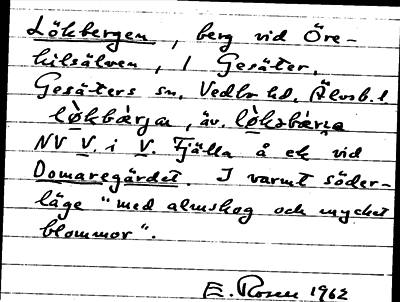 Lökbergen, berg vid Öre-
kilsälven, i Gesäter,
Gesäters sn, Vedbo hd, Älvsb. l
lø̀kbæ̀rja, äv. lø̀ksbæ̀rja
NV V. i V. Fjälla å ek vid
Domaregärdet. I varmt söder-
läge "med almskog och mycket
blommor".
E. Rosen 1962